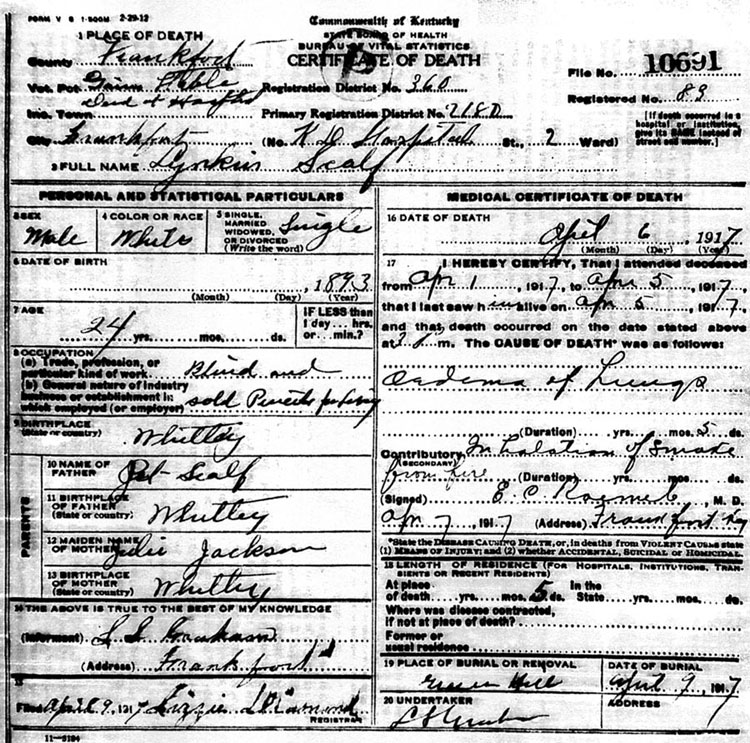 FORM V S 1-500M 2-29-12
Commonwealth of Kentucky
STATE BOARD OF HEALTH
BUREAU OF VITAL STATISTICS
CERTIFICATE OF DEATH
1 PLACE OF DEATH
County
Vot. Pct.
Inc. Town
City Frankfort
Registration District No. 360
Primary Registration District No. 2180
(No. Hospital St., 2 Ward)
File No. 10691
Registered No. 83
[If death occurred in a
hospital or institution,
give its NAME instead of
street and number.]
2 FULL NAME Scalf
PERSONAL AND STATISTICAL PARTICULARS
3 SEX
Male
4 COLOR OR RACE
White
5 SINGLE,
MARRIED
WIDOWED,
OR DIVORCED
(Write the word)
Single
6 DATE OF BIRTH
, 1893
(Month) (Day) (Year)
7 AGE
24 yrs. mos. ds.
IF LESS than
1 day... hrs.
or ... min.?
8 OCCUPATION
(a) Trade, profession, or
particular kind of work Blind and
(b) General nature of industry
business or establishment in
which employed (or employer) sold Pencils for living
9 BIRTHPLACE
(State or country) Whitley
PARENTS
10 NAME OF
FATHER Pat Scalf
11 BIRTHPLACE
OF FATHER
(State or country) Whitley
12 MAIDEN NAME
OF MOTHER Julie Jackson
13 BIRTHPLACE
OF MOTHER
(State or country) Whitley
14 THE ABOVE IS TRUE TO THE BEST OF MY KNOWLEDGE
(Informant)
(Address) Frankfort
15
Filed April 9, 1917 Lizzie
REGISTRAR
11-3184
MEDICAL CERTIFICATE OF DEATH
16 DATE OF DEATH
April 6, 1917
(Month) (Day) (Year)
17 I HEREBY CERTIFY, That I attended deceased
from Apr 1, 1917, to Apr 5, 1917,
that I last saw him alive on Apr 5, 1917,
and that death occurred on the date stated above
at m. The CAUSE OF DEATH* was as follows:
Oedema of Lungs
(Duration) yrs. mos. 5 ds.
Contributory Inhalation of Smoke
(SECONDARY)
from fire (Duration) yrs. mos. ds.
(Signed) E. C. , M. D.
Apr 7, 1917 (Address) Frankfort Ky
*State the DISEASE CAUSING DEATH, or, in deaths from VIOLENT CAUSES state
(1) MEANS OF INJURY; and (2) whether ACCIDENTAL, SUICIDAL or HOMICIDAL.
18 LENGTH OF RESIDENCE (FOR HOSPITALS, INSTITUTIONS, TRAN-
SIENTS OR RECENT RESIDENTS)
At place In the
of death yrs. mos. 5 ds. State yrs. mos. ds.
Where was disease contracted,
if not at place of death?
Former or
usual residence
19 PLACE OF BURIAL OR REMOVAL
Green Hill
DATE OF BURIAL
April 9, 1917
20 UNDERTAKER